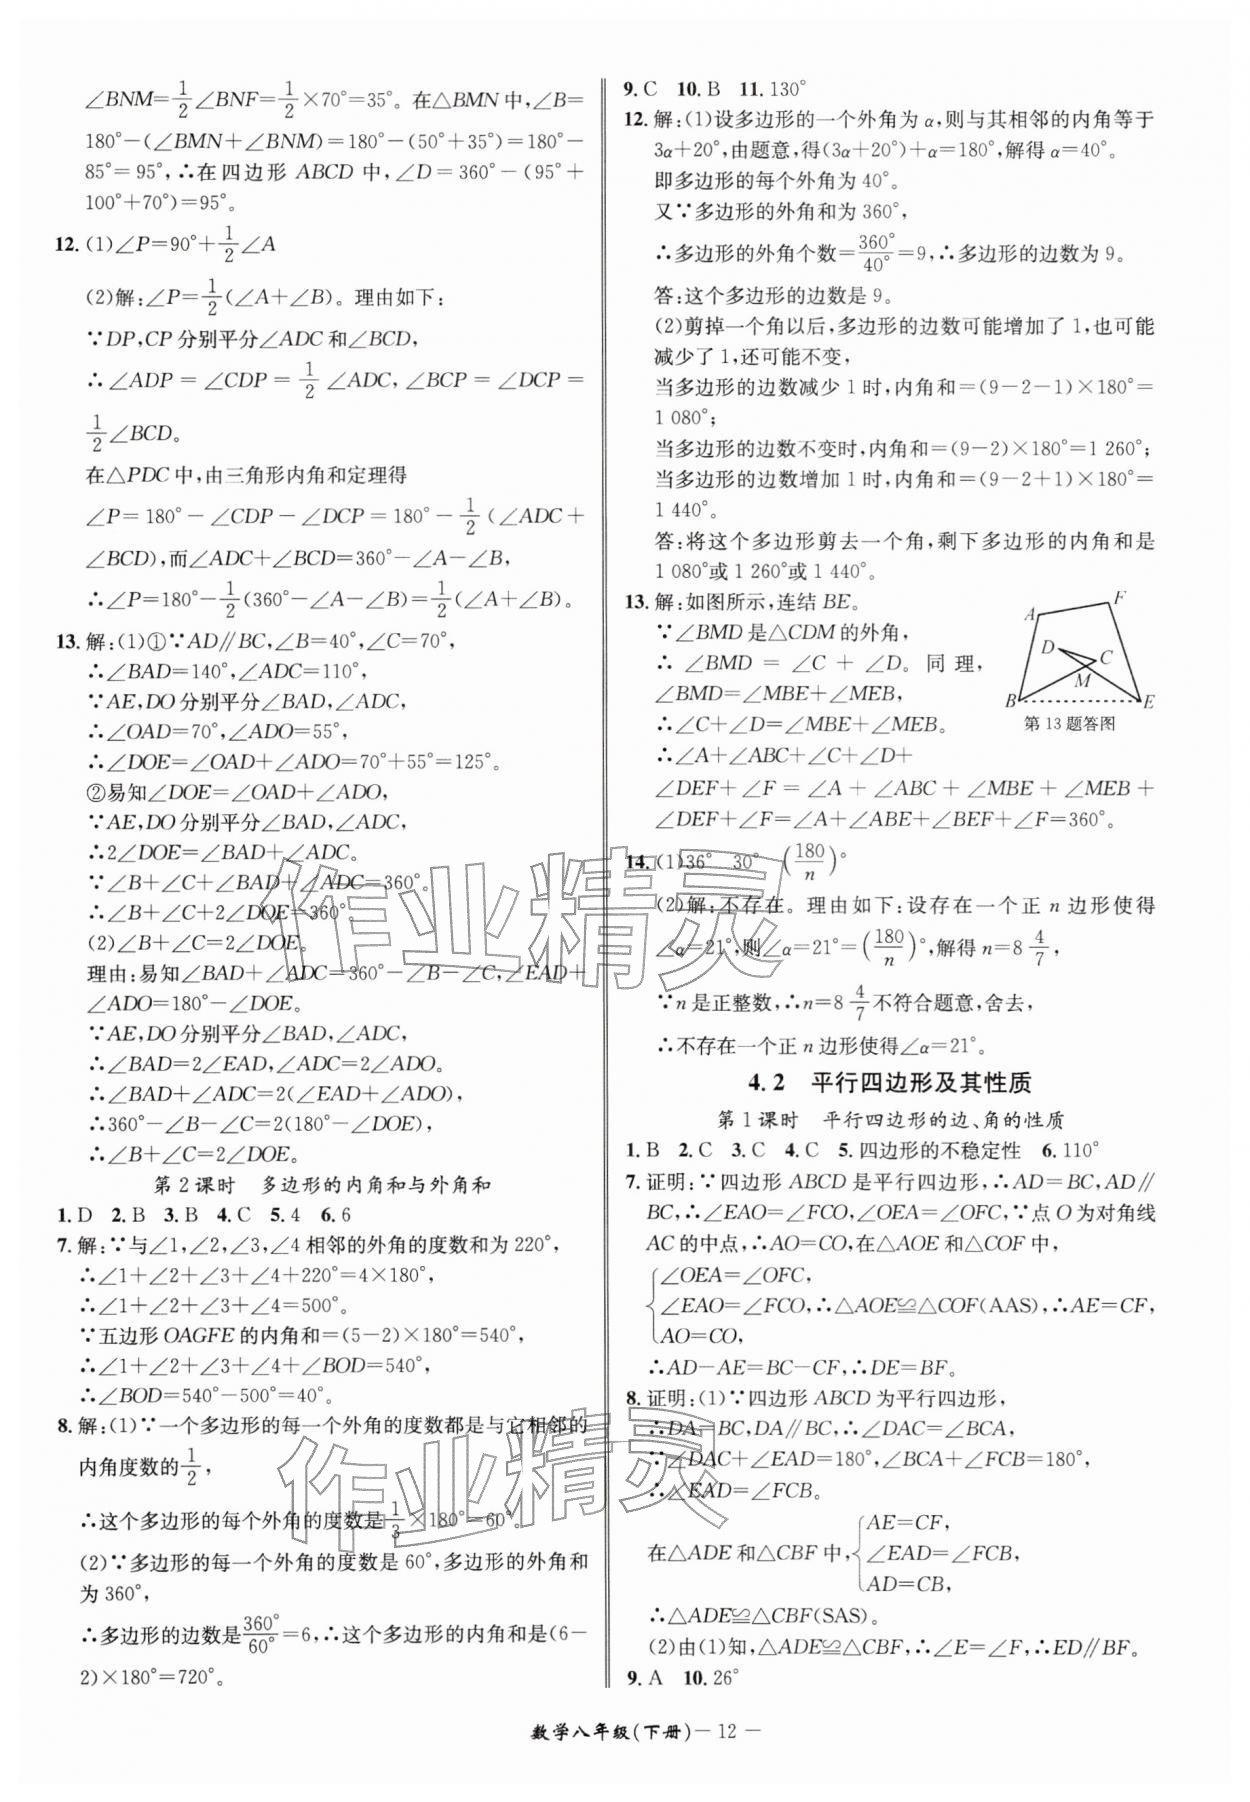 ∠BNM=1/2∠BNF=1/2×70°=35°。在△BMN中,∠B=
180°-(∠BMN+∠BNM)=180°-(50°+35°)=180°-
85°=95°,∴在四边形ABCD中,∠D=360°-(95°+
100°+70°)=95°。
12.(1)∠P=90°+1/2∠A
(2)解:∠P=1/2(∠A+∠B)。理由如下:
∵DP,CP分别平分∠ADC和∠BCD,
∴∠ADP=∠CDP=1/2∠ADC,∠BCP=∠DCP=
1/2∠BCD。
在△PDC中,由三角形内角和定理得
∠P=180°-∠CDP-∠DCP=180°-1/2(∠ADC+
∠BCD),而∠ADC+∠BCD=360°-∠A-∠B,
∴∠P=180°-1/2(360°-∠A-∠B)=1/2(∠A+∠B)。
13.解:(1)①∵AD∥BC,∠B=40°,∠C=70°,
∴∠BAD=140°,∠ADC=110°,
∵AE,DO分别平分∠BAD,∠ADC,
∴∠OAD=70°,∠ADO=55°,
∴∠DOE=∠OAD+∠ADO=70°+55°=125°。
②易知∠DOE=∠OAD+∠ADO,
∵AE,DO分别平分∠BAD,∠ADC,
∴2∠DOE=∠BAD+∠ADC。
∵∠B+∠C+∠BAD+∠ADC=360°,
∴∠B+∠C+2∠DOE=360°。
(2)∠B+∠C=2∠DOE。
理由:易知∠BAD+∠ADC=360°-∠B-∠C,∠EAD+
∠ADO=180°-∠DOE。
∵AE,DO分别平分∠BAD,∠ADC,
∴∠BAD=2∠EAD,∠ADC=2∠ADO。
∴∠BAD+∠ADC=2(∠EAD+∠ADO),
∴360°-∠B-∠C=2(180°-∠DOE),
∴∠B+∠C=2∠DOE。
第2课时 多边形的内角和与外角和
1.D 2.B 3.B 4.C 5.4 6.6
7.解:∵与∠1,∠2,∠3,∠4相邻的外角的度数和为220°,
∴∠1+∠2+∠3+∠4+220°=4×180°,
∴∠1+∠2+∠3+∠4=500°。
∵五边形OAGFE的内角和=(5-2)×180°=540°,
∴∠1+∠2+∠3+∠4+∠BOD=540°,
∴∠BOD=540°-500°=40°。
8.解:(1)∵一个多边形的每一个外角的度数都是与它相邻的
内角度数的1/2,
∴这个多边形的每个外角的度数是1/3×180°=60°。
(2)∵多边形的每一个外角的度数是60°,多边形的外角和
为360°,
∴多边形的边数是360°/60°=6,∴这个多边形的内角和是(6-
2)×180°=720°。
9.C 10.B 11.130°
12.解:(1)设多边形的一个外角为α,则与其相邻的内角等于
3α+20°,由题意,得(3α+20°)+α=180°,解得α=40°。
即多边形的每个外角为40°。
又∵多边形的外角和为360°,
∴多边形的外角个数=360°/40°=9,∴多边形的边数为9。
答:这个多边形的边数是9。
(2)剪掉一个角以后,多边形的边数可能增加了1,也可能
减少了1,还可能不变,
当多边形的边数减少1时,内角和=(9-2-1)×180°=
1 080°;
当多边形的边数不变时,内角和=(9-2)×180°=1 260°;
当多边形的边数增加1时,内角和=(9-2+1)×180°=
1 440°。
答:将这个多边形剪去一个角,剩下多边形的内角和是
1 080°或1 260°或1 440°。
13.解:如图所示,连结BE。
∵∠BMD是△CDM的外角,
∴∠BMD=∠C+∠D。同理,
∠BMD=∠MBE+∠MEB,
∴∠C+∠D=∠MBE+∠MEB。
∴∠A+∠ABC+∠C+∠D+
∠DEF+∠F=∠A+∠ABC+∠MBE+∠MEB+
∠DEF+∠F=∠A+∠ABE+∠BEF+∠F=360°。
A F D C M B E
第13题答图
14.(1)36° 30° (180/n)°
(2)解:不存在。理由如下:设存在一个正n边形使得
∠α=21°,则∠α=21°=(180/n)°,解得n=8 4/7,
∵n是正整数,∴n=8 4/7不符合题意,舍去,
∴不存在一个正n边形使得∠α=21°。
4.2 平行四边形及其性质
第1课时 平行四边形的边、角的性质
1.B 2.C 3.C 4.C 5.四边形的不稳定性 6.110°
7.证明:∵四边形ABCD是平行四边形,∴AD=BC,AD∥
BC,∴∠EAO=∠FCO,∠OEA=∠OFC,∵点O为对角线
AC的中点,∴AO=CO,在△AOE和△COF中,
∠OEA=∠OFC,
∠EAO=∠FCO,∴△AOE≌△COF(AAS),∴AE=CF,
AO=CO,
∴AD-AE=BC-CF,∴DE=BF。
8.证明:(1)∵四边形ABCD为平行四边形,
∴DA=BC,DA∥BC,∴∠DAC=∠BCA,
∵∠DAC+∠EAD=180°,∠BCA+∠FCB=180°,
∴∠EAD=∠FCB。
AE=CF,
在△ADE和△CBF中,∠EAD=∠FCB,
AD=CB,
∴△ADE≌△CBF(SAS)。
(2)由(1)知,△ADE≌△CBF,∴∠E=∠F,∴ED∥BF。
9.A 10.26°
数学八年级(下册)—12—
作业精灵
作业精灵